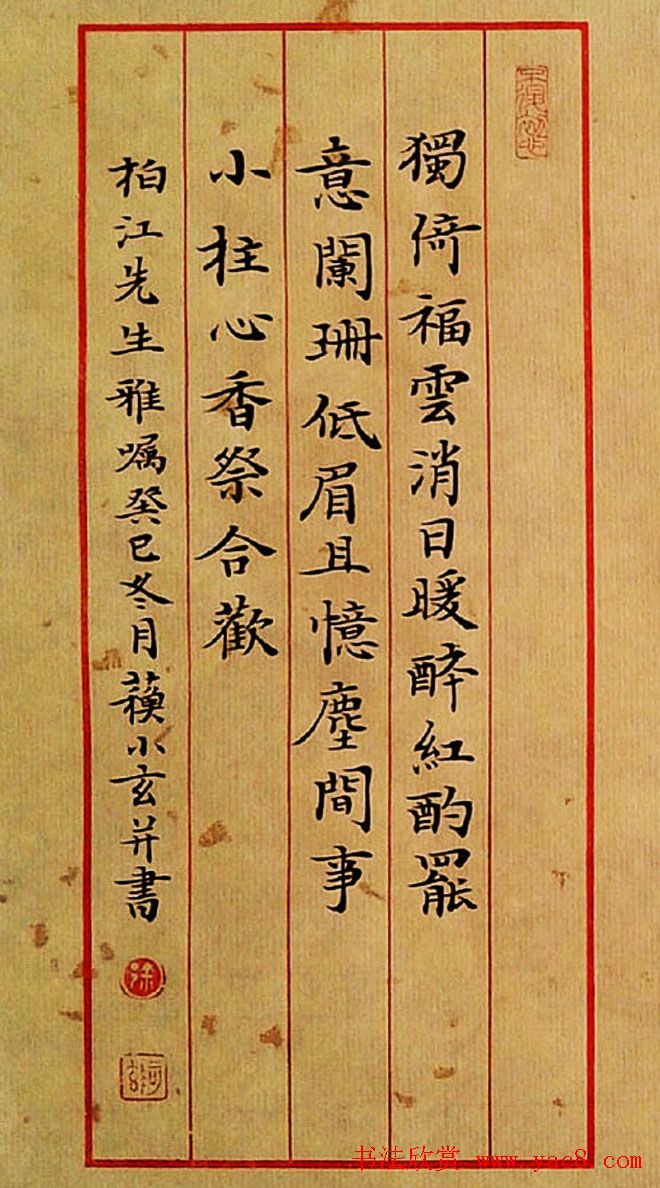 獨倚福雲消日暖醉紅酌罷
意闌珊低眉且憶塵間事
小柱心香祭合歡
柏江先生雅嘱癸巳冬月蘋小玄并書
书法欣赏 www.yac8.com